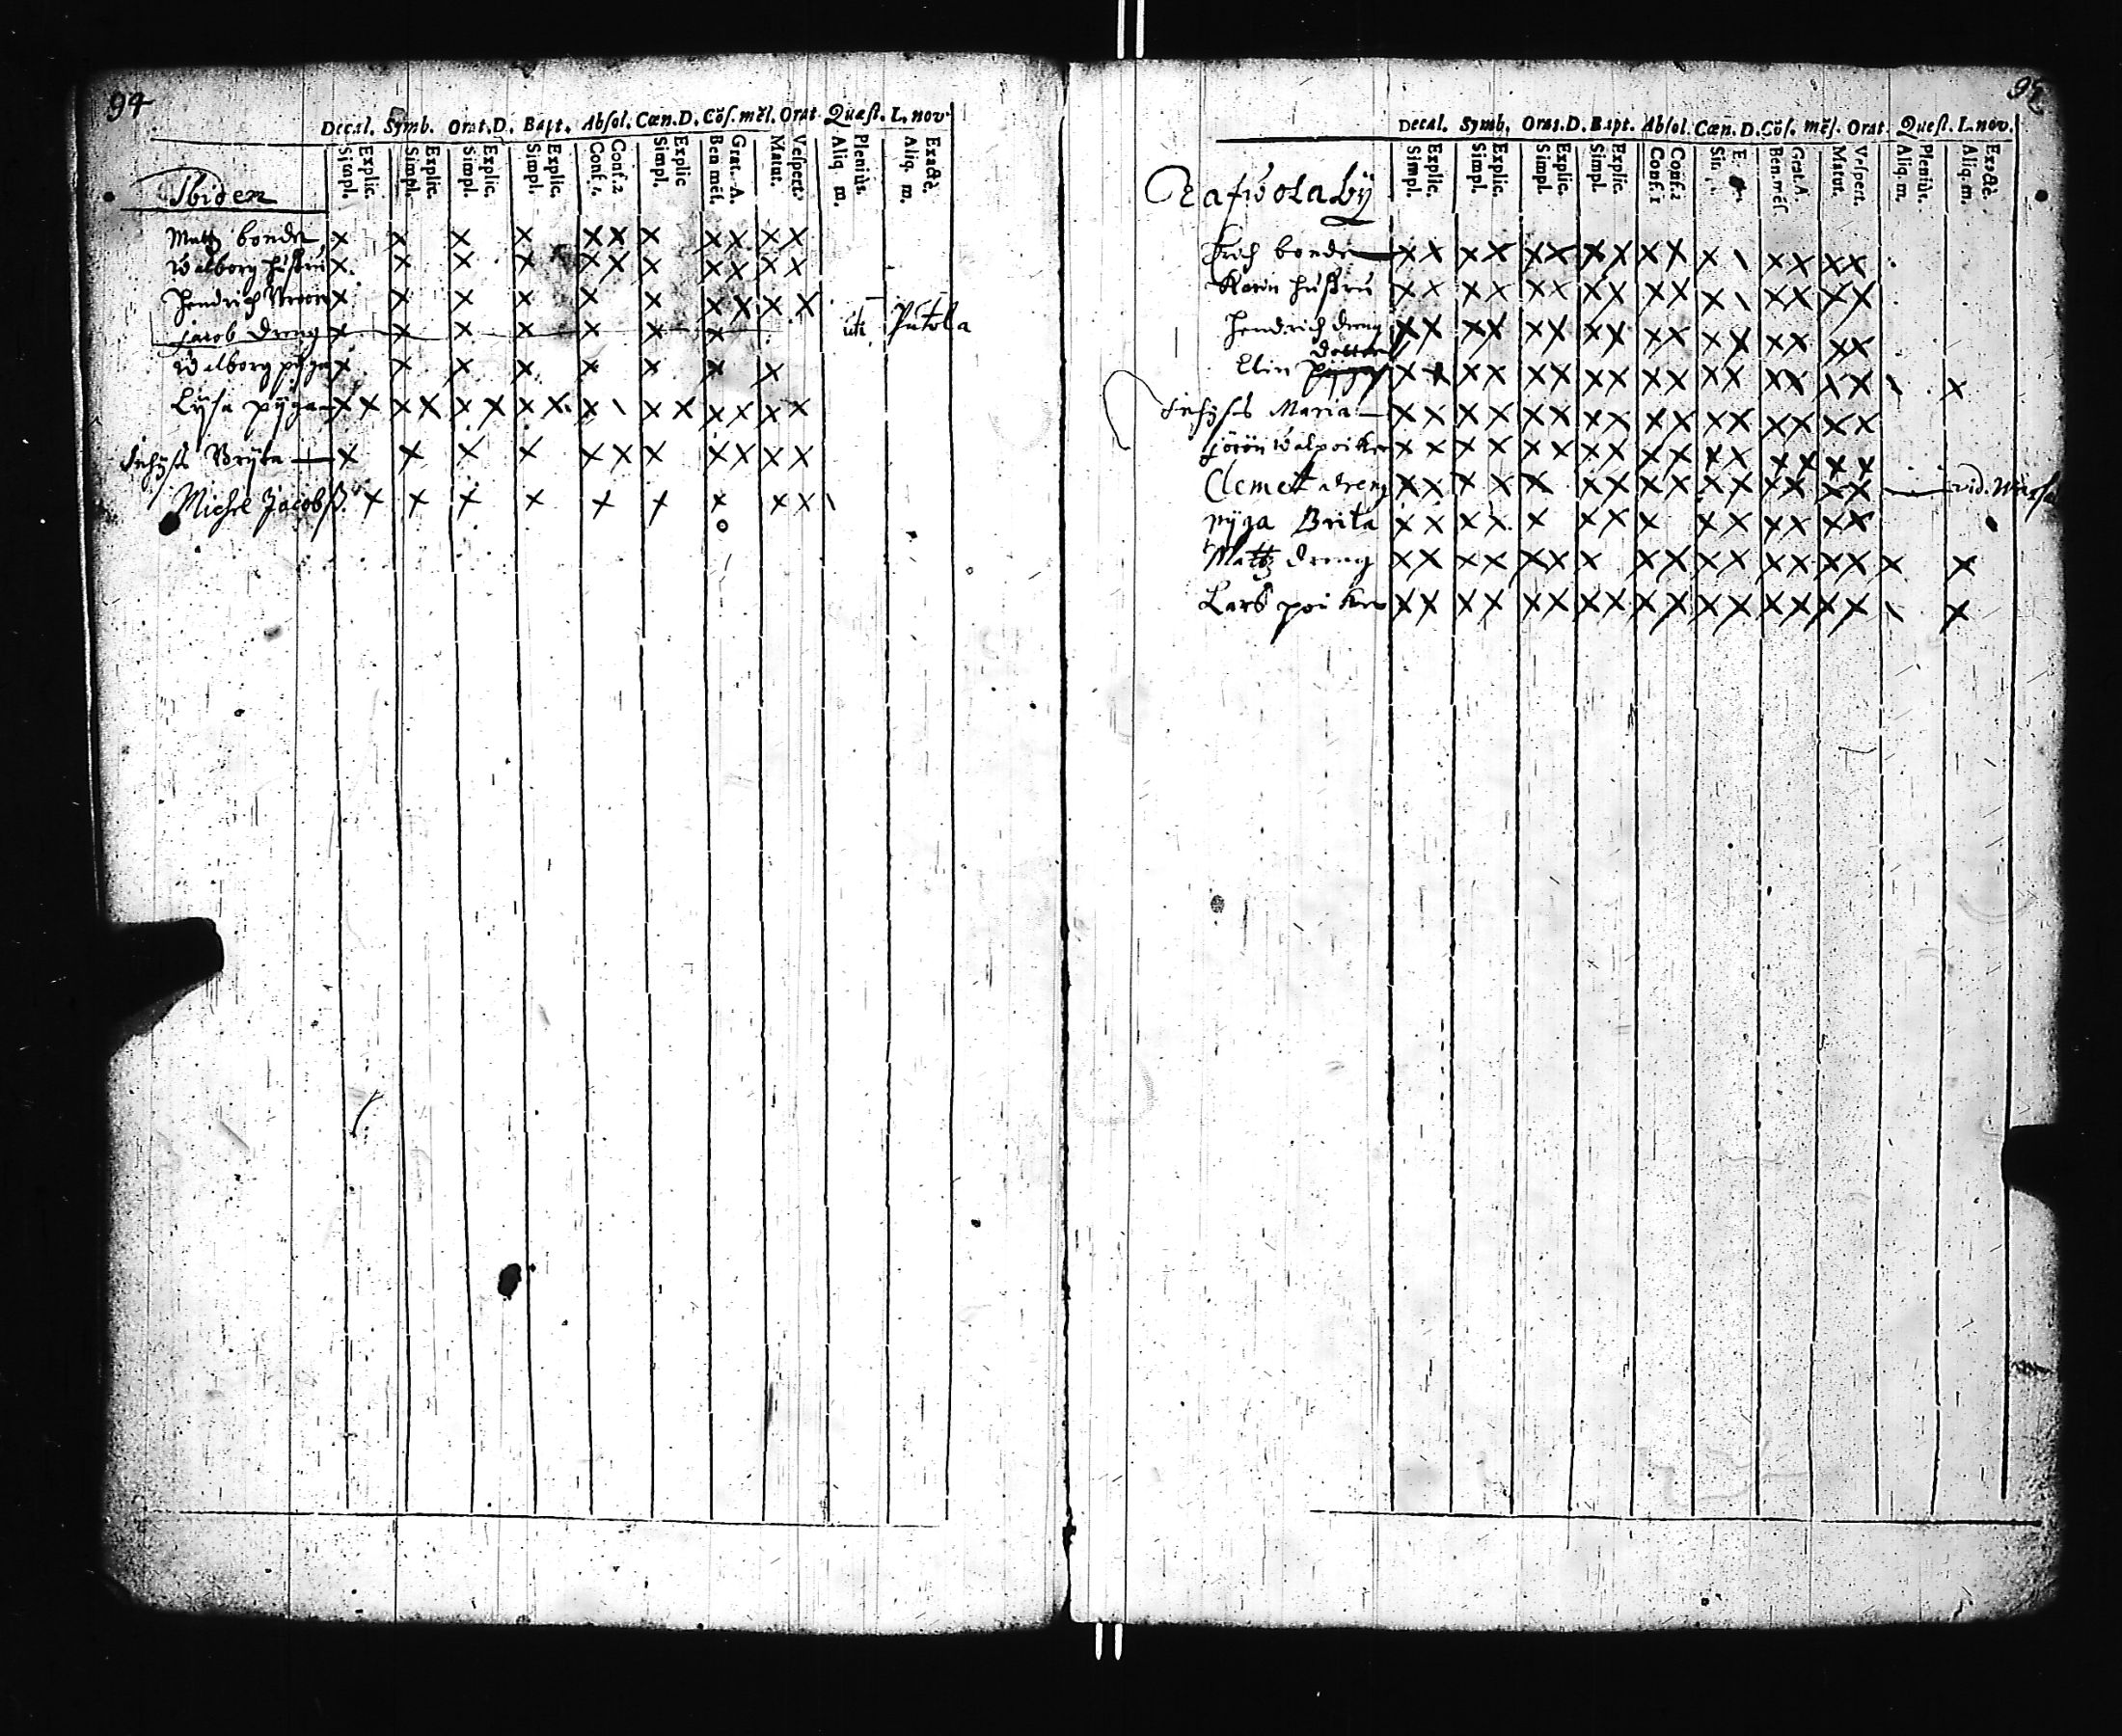 94
Decal. Symb. Orat. D. Bapt. Absol. Cœn. D. Cös. mẽs. Orat. Quæst. L. nov.
Simpl. Explic. Simpl. Explic. Simpl. Explic. Simpl. Explic. Conf. 1. Conf. 2 Simpl. Explic Ben mẽs. Grat. A. Matut. Vespert. Aliq. m. Pleniùs. Aliq. m. Exactè.
Ibidem
Matz bonden x x x x x x x x x x x
Walborg hustru x x x x x x x x x x x
Hendrich x x x x x x x x x x
Jacob dreng x x x x x x x uti Putola
Walborg pijga x x x x x x x x
Lijsa pijga x x x x x x x x x \ x x x x x x
Inhyses Brijta x x x x x x x x x x x
Michel Jacobß. x x x x x x x x x \
95
Decal. Symb. Orat. D. Bapt. Absol. Cœn. D. Cös. mẽs. Orat. Quest. L. nov.
Simpl. Explic. Simpl. Explic. Simpl. Explic. Simpl. Explic. Conf. 1 Conf. 2 Ben. mẽs Grat. A. Matut. Vespert. Aliq. m. Pleniùs. Aliq. m. Exactè.
Rafwolabÿ
Erich bonde x x x x x x x x x x x \ x x x x
Karin hustru x x x x x x x x x x x \ x x x x
Hendrich dreng x x x x x x x x x x x x x x x x
dotter
Elin pijga x x x x x x x x x x x x x x \ x \ x
Inhyses Maria x x x x x x x x x x x x x x x x
x x x x x x x x x x x x x x x x
Clemett dreng x x x x x x x x x x x x x x x vid.
pijga Brita x x x x x x x x x x x x x x
Mattz dreng x x x x x x x x x x x x x x x x x
Lars x x x x x x x x x x x x x x x x \ x